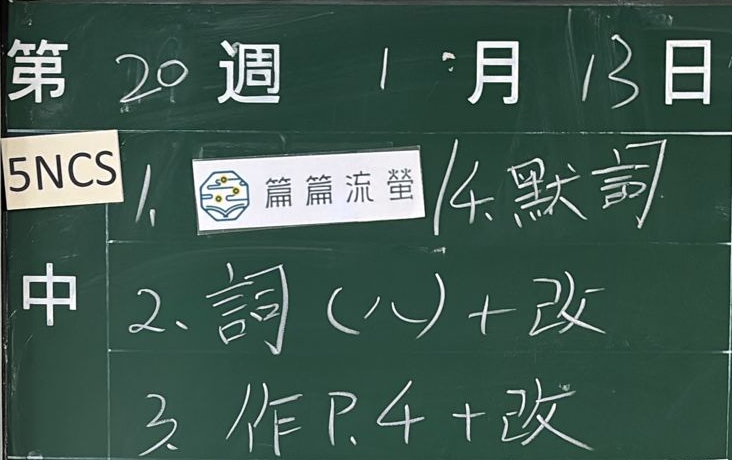 第 20 週 1 月 13 日
5NCS
1. 篇篇流螢 /4. 默詞
中
2. 詞(八)+改
3. 作P.4+改